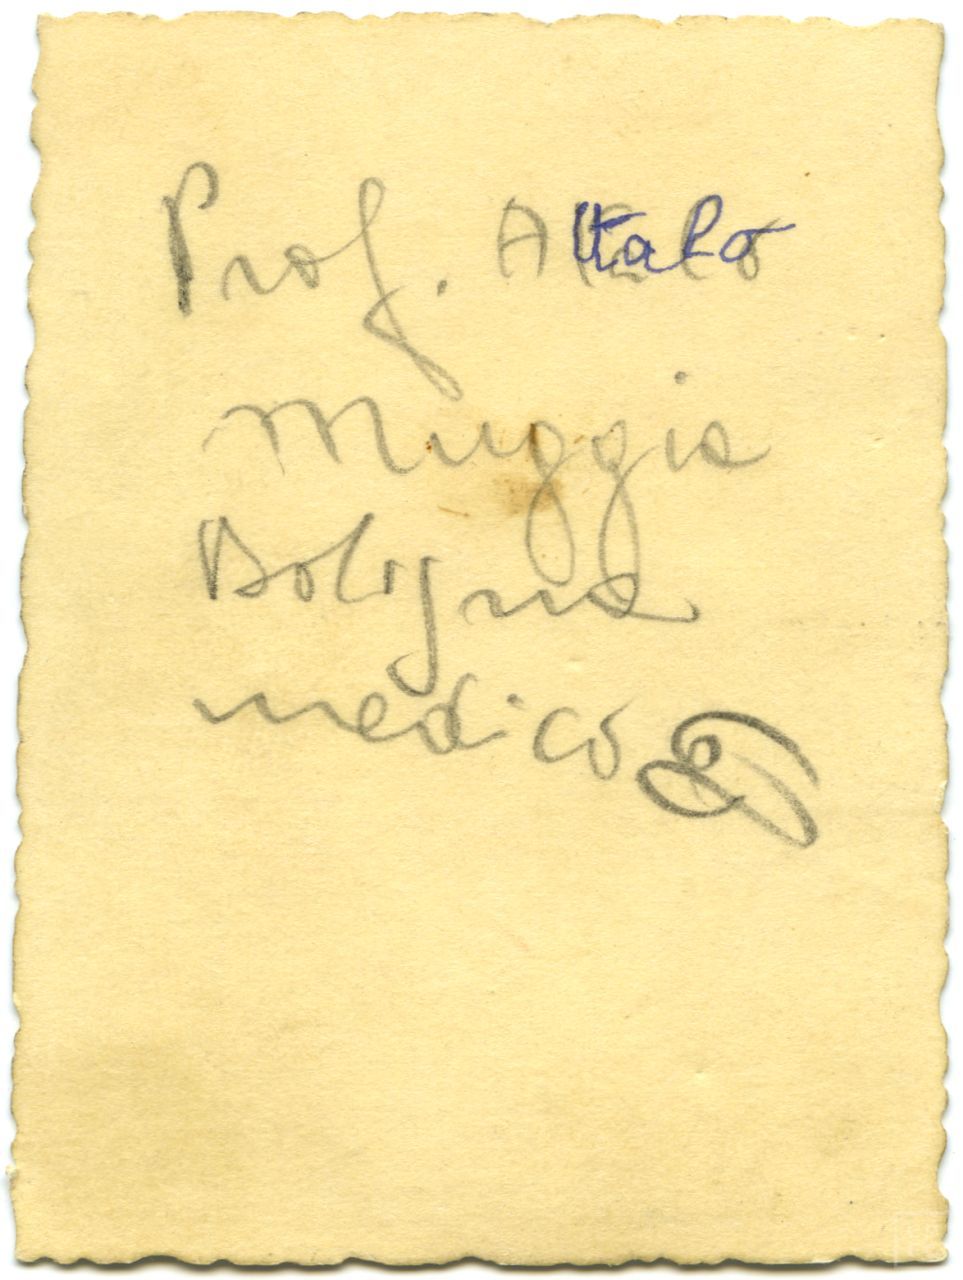 Prof. Attalo
Muggia
Bologna
medico